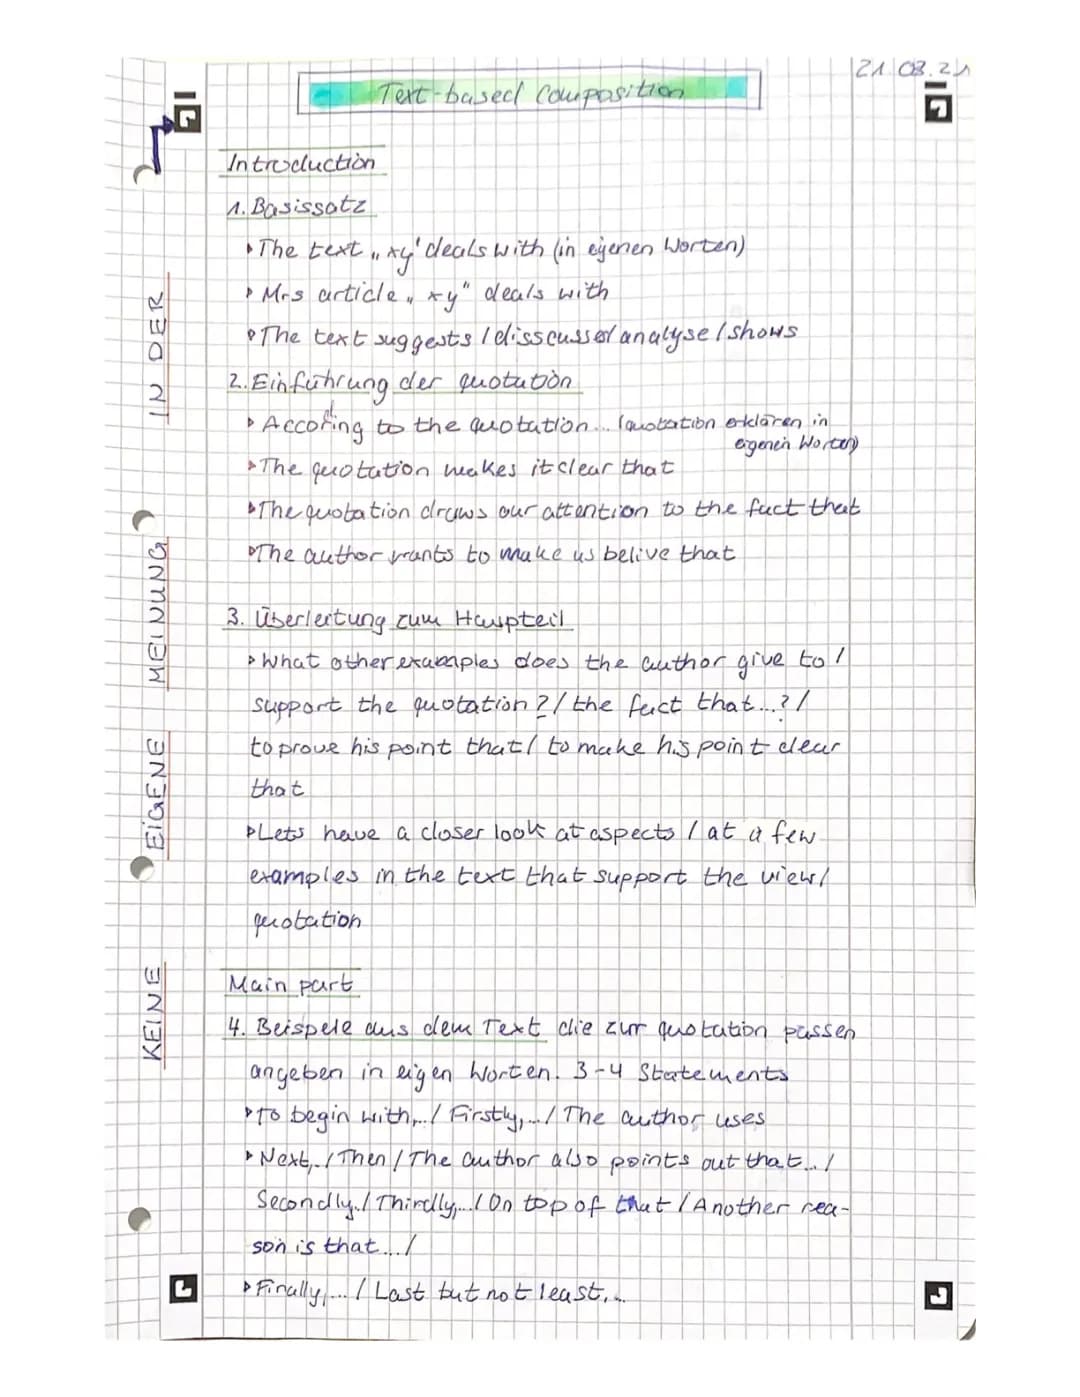 21.08.21
Text-based composition
Introduction
1. Basissatz
▸ The text „xy" deals with (in eigenen Worten)
▸ Mrs article „xy" deals with
▸ The text suggests / disscusses / analyse / shows
2. Einführung der quotation
▸ Accoring to the quotation... (quotation erklären in
d
eigenen Worten)
▸ The quotation makes it clear that
▸ The quotation draws our attention to the fact that
▸ The author wants to make us belive that
3. Überleitung zum Haupteil
▸ What other examples does the author give to /
support the quotation? / the fact that...? /
to prove his point that / to make his point clear
that
▸ Lets have a closer look at aspects / at a few
examples in the text that support the view /
quotation
Main part
4. Beispele aus dem Text die zur quotation passen
angeben in eigen Worten. 3-4 Statements
▸ To begin with,... / Firstly,... / The author uses
▸ Next,.. / Then / The author also points out that... /
Secondly.. / Thirdly,... / On top of that / Another rea-
son is that... /
▸ Finally,... / Last but not least,...
KEINE EIGENE MEINUNG IN DER